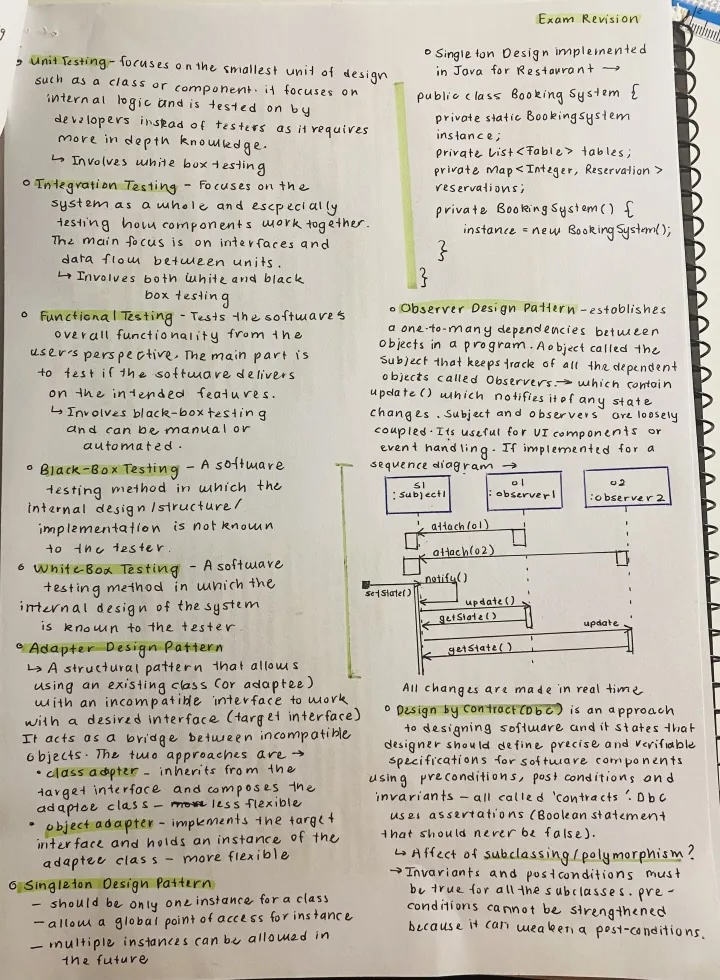 Exam Revision
○ Unit Testing - focuses on the smallest unit of design
such as a class or component. it focuses on
internal logic and is tested on by
developers instead of testers as it requires
more in depth knowledge.
↳ Involves white box testing
○ Integration Testing - Focuses on the
system as a whole and escpecially
testing how components work together.
The main focus is on interfaces and
data flow between units.
↳ Involves both white and black
box testing
○ Functional Testing - Tests the software's
overall functionality from the
user's perspective. The main part is
to test if the software delivers
on the intended features.
↳ Involves black-box testing
and can be manual or
automated.
○ Black-Box Testing - A software
testing method in which the
internal design/structure/
implementation is not known
to the tester.
○ White-Box Testing - A software
testing method in which the
internal design of the system
is known to the tester
○ Adapter Design Pattern
↳ A structural pattern that allows
using an existing class (or adaptee)
with an incompatible interface to work
with a desired interface (target interface)
It acts as a bridge between incompatible
objects. The two approaches are →
• class adpter - inherits from the
target interface and composes the
adaptoe class - more less flexible
• object adapter - implements the target
interface and holds an instance of the
adaptee class - more flexible
○ Singleton Design Pattern
- should be only one instance for a class
- allow a global point of access for instance
- multiple instances can be allowed in
the future
○ Singleton Design implemented
in Java for Restaurant →
public class Booking System {
private static Bookingsystem
instance;
private List<Table> tables;
private Map<Integer, Reservation>
reservations;
private BookingSystem() {
instance = new BookingSystem();
}
}
○ Observer Design Pattern - establishes
a one-to-many dependencies between
objects in a program. A object called the
Subject that keeps track of all the dependent
objects called Observers. → which contain
update() which notifies it of any state
changes. Subject and observers are loosely
coupled. Its useful for UI components or
event handling. If implemented for a
sequence diagram →
S1
:Subject1
o1
:observer1
o2
:observer2
attach(o1)
attach(o2)
notify()
setState()
update()
getState()
update
getState()
All changes are made in real time
○ Design by Contract (DbC) is an approach
to designing software and it states that
designer should define precise and verifiable
specifications for software components
using preconditions, post conditions and
invariants - all called 'contracts'. DbC
uses assertations (Boolean statement
that should never be false).
↳ Affect of subclassing/polymorphism?
→ Invariants and postconditions must
be true for all the subclasses. pre-
conditions cannot be strengthened
because it can weaken a post-conditions.